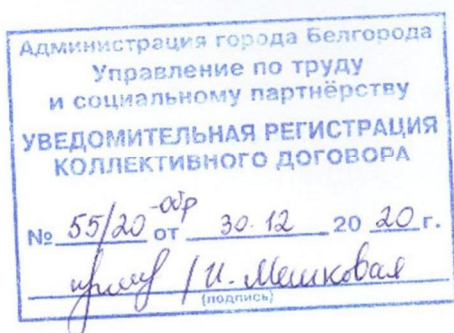 Администрация города Белгорода
Управление по труду
и социальному партнёрству
УВЕДОМИТЕЛЬНАЯ РЕГИСТРАЦИЯ
КОЛЛЕКТИВНОГО ДОГОВОРА
№ 55/20-обр от 30.12 2020 г.
/И. Мешковая
(подпись)